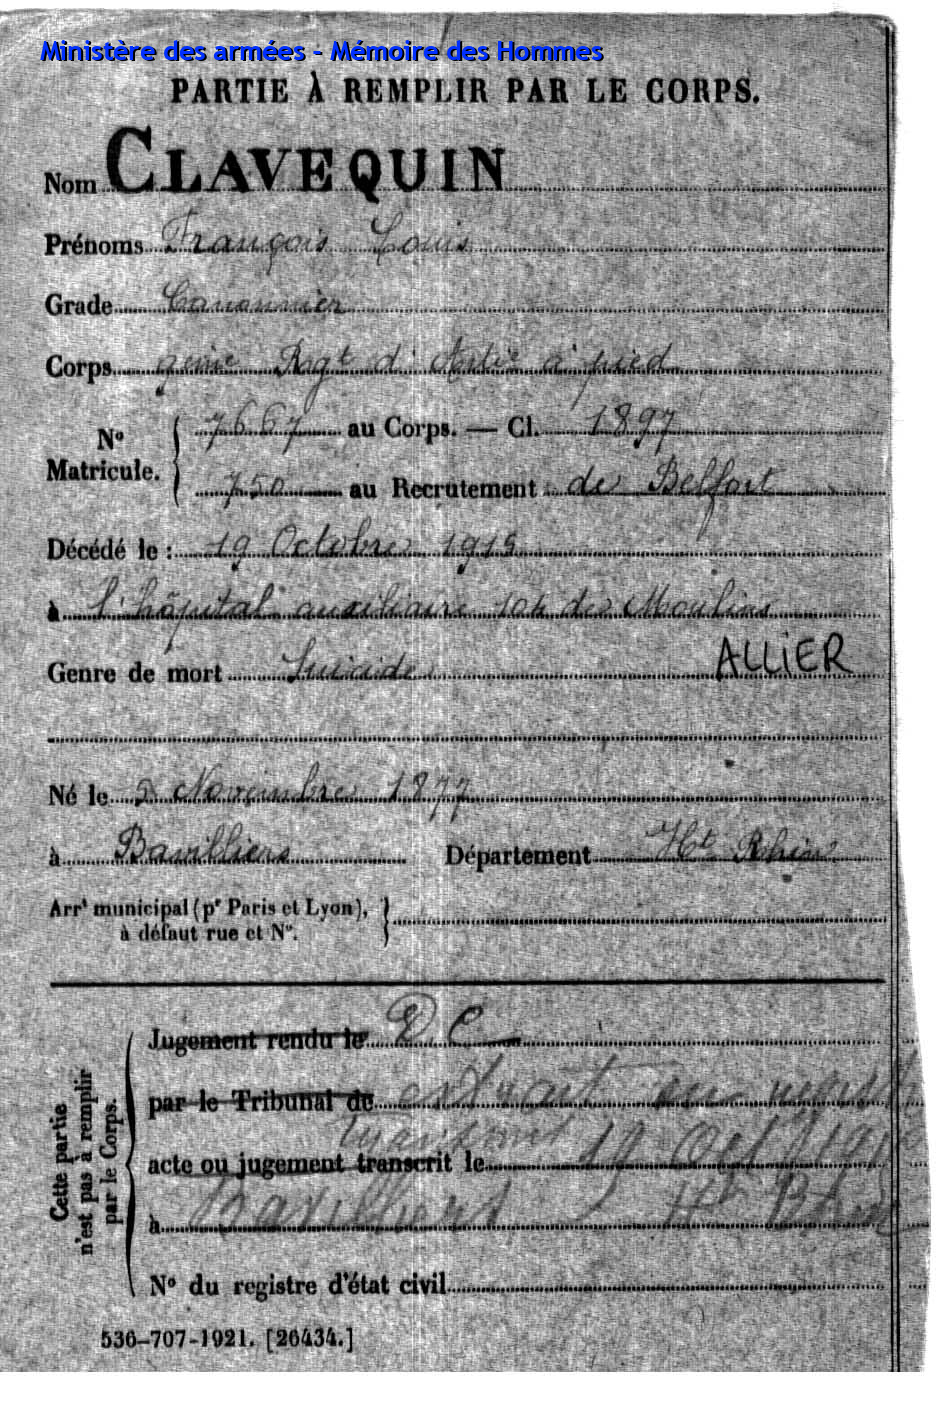 Ministère des armées - Mémoire des Hommes
PARTIE À REMPLIR PAR LE CORPS.
Nom CLAVEQUIN
Prénoms François Louis
Grade Canonnier
Corps 9eme Rgt d'Artie à pied
No Matricule. 7667 au Corps. — Cl. 1897
750 au Recrutement de Belfort
Décédé le : 19 Octobre 1915
à l'hôpital auxiliaire 104 des Moulins
ALLIER
Genre de mort Suicide
Né le 2 Novembre 1877
à Bavilliers Département Ht Rhin
Arrt municipal (pr Paris et Lyon),
à défaut rue et No.
Cette partie
n'est pas à remplir
par le Corps.
Jugement rendu le D. C
par le Tribunal de extrait
acte ou jugement transcrit le 19 Oct
à Bavilliers Ht Rhin
No du registre d'état civil
536-707-1921. [26434.]